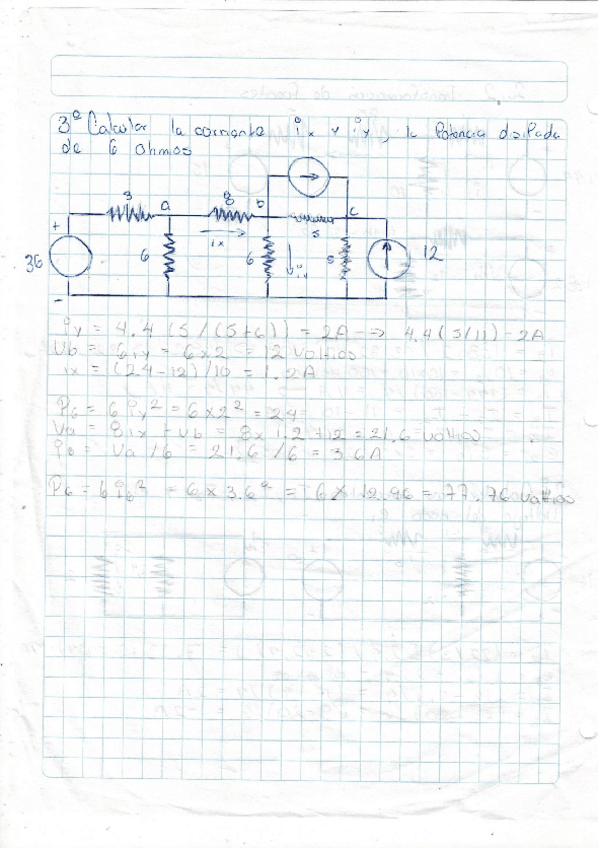 3º Calcular la corriente ix y iy, la Potencia disipada
de 6 ohmos
3 a 8 b c
+
36 6 ix 6 iy 5 5 12
-
iy = 4.4 (5/(5+6)) = 2A → 4.4(5/11) - 2A
Vb = 6iy = 6x2 = 12 voltios
ix = (24-12)/10 = 1.2A
P6 = 6iy² = 6x2² = 24
Va = 8ix + vb = 8x1.2+12 = 21.6 voltios
i6 = Va/6 = 21.6/6 = 3.6A
P6 = 6i6² = 6 x 3.6² = 6 x 12.96 = 77.76 vattios